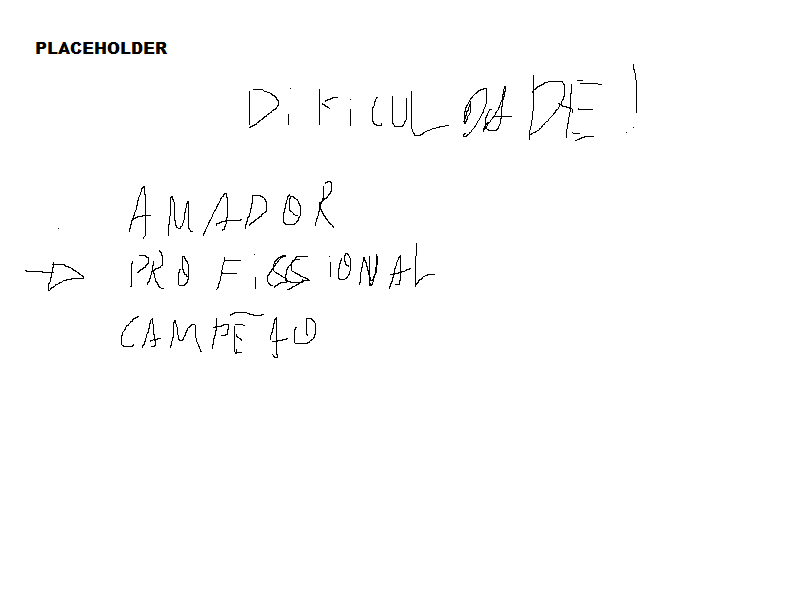 PLACEHOLDER
DIFICULDADE!
AMADOR
PROFISSIONAL
CAMPEÃO